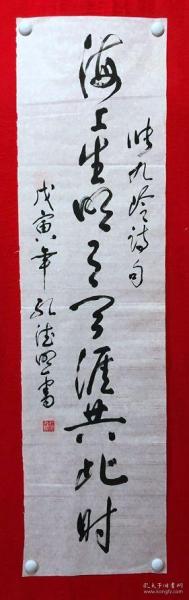 张九龄诗句
海上生明月天涯共此时
戊寅年
德明书
孔夫子旧书网
www.kongfz.com